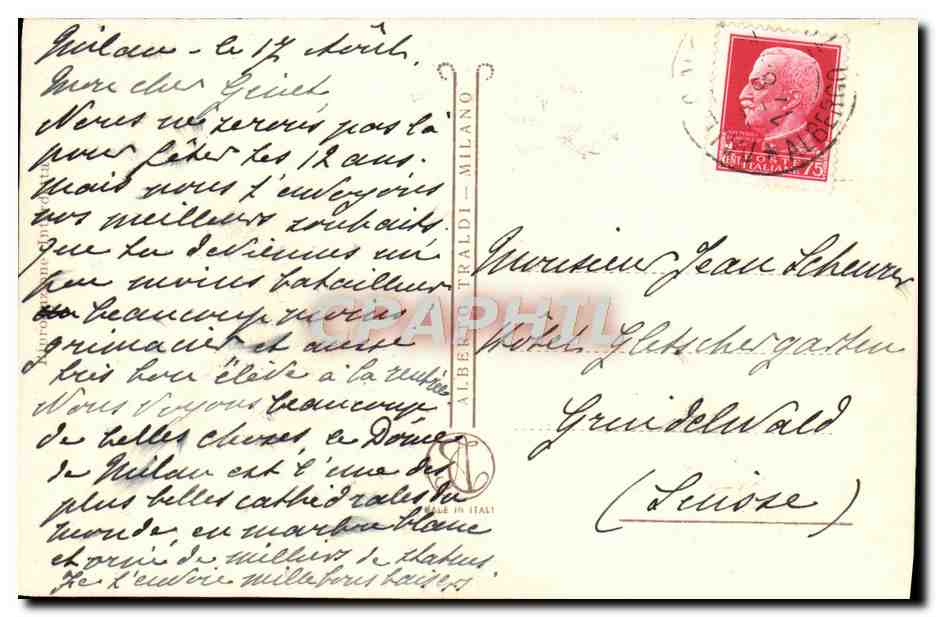 Milan - le 17 Août.
Mon cher Genet,
Nous ne serons pas là
pour fêter tes 12 ans.
Mais nous t'envoyons
nos meilleurs souhaits
que tu deviennes un
peu moins batailleur
beaucoup moins
grimacier et aussi
très bon élève à la rentrée
Nous voyons beaucoup
de belles choses, le Dôme
de Milan est l'une des
plus belles cathédrales du
monde, en marbre blanc
et orné de milliers de statues.
Je t'envoie mille bons baisers
Riproduzione Interdetta
ALBERTO TRALDI — MILANO
MADE IN ITALY
CPAPHIL
POSTE
CENT ITALIANE 75
ALBERGO
Monsieur Jean Scheurer
Hôtel Gletschergarten
Grindelwald
(Suisse)